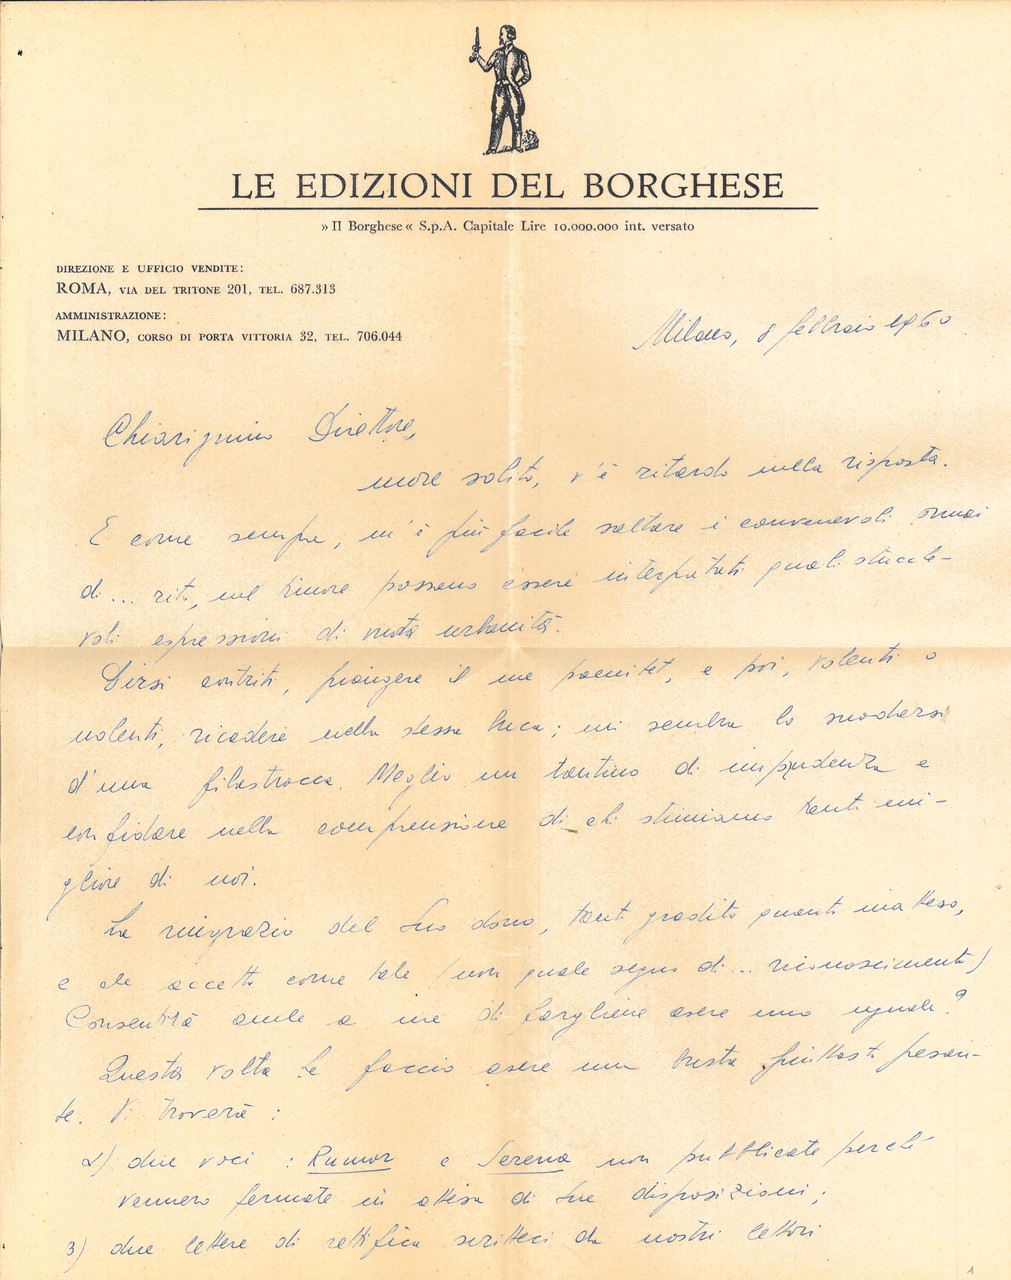 LE EDIZIONI DEL BORGHESE
» Il Borghese « S.p.A. Capitale Lire 10.000.000 int. versato
DIREZIONE E UFFICIO VENDITE:
ROMA, VIA DEL TRITONE 201, TEL. 687.313
AMMINISTRAZIONE:
MILANO, CORSO DI PORTA VITTORIA 32, TEL. 706.044
Milano, 8 febbraio 1960
Chiarissimo Direttore,
more solito, v'è ritardo nella risposta.
E come sempre, m'è più facile saltare i convenevoli ormai
di... rito, nel timore possano essere interpretati quali stucche-
voli espressioni di vuota urbanità.
Dirsi contriti, piangere il me paenitet, e poi, volenti o
nolenti, ricadere nella stessa buca; mi sembra lo snodarsi
d'una filastrocca. Meglio un tantino di impudenza e
confidare nella comprensione di chi stimiamo tanto mi-
gliore di noi.
La ringrazio del Suo dono, tanto gradito quanto inatteso,
e che accetto come tale (non quale segno di... riconoscimento)
Consentirà anche a me di fargliene avere uno uguale?
Questa volta Le faccio avere una busta piuttosto pesan-
te. Vi troverà:
2) due voci: Rumor e Serena non pubblicate perché
vennero fermate in attesa di Sue disposizioni;
3) due lettere di rettifica scritteci da nostri lettori
1